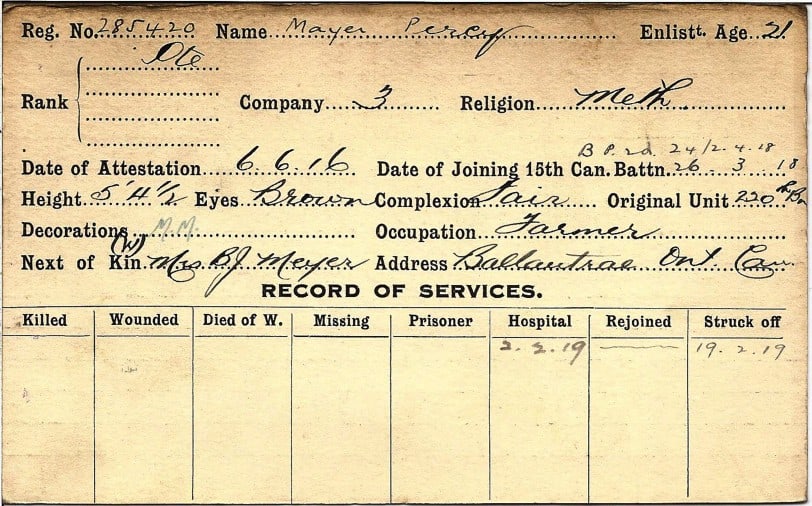 Reg. No. 285420 Name Mayer Percy Enlistt. Age 21
Pte
Rank Company 3 Religion Meth.
B.P. 2d. 24/2.4.18
Date of Attestation 6.6.16 Date of Joining 15th Can. Battn. 26.3.18
Height 5'4½ Eyes Brown Complexion Fair Original Unit 220 Bn
Decorations M.M. Occupation Farmer
(W)
Next of Kin Mrs BJ Meyer Address Ballantrae Ont Can.
RECORD OF SERVICES.
Killed Wounded Died of W. Missing Prisoner Hospital Rejoined Struck off
2.2.19 19.2.19